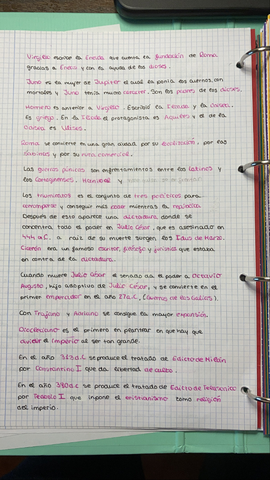 Virgilio escribe la Eneida que cuenta la fundación de Roma
gracias a Eneas y con la ayuda de los dioses.
Juno es la mujer de Jupiter al cual le ponía los cuernos con
mortales y Juno tenía mucho carácter. Son los padres de los dioses.
Homero es anterior a Virgilio. Escribió la Iliada y la Odisea.
Es griego. En la Iliada el protagonista es Aquiles y el de la
Odisea es Ulises.
Roma se convierte en una gran ciudad por su civilización, por las
y por su ruta comercial.
Las guerras púnicas son enfrentamientos entre los latinos y
los cartagineses. Hannibal y
Los triunviratos es el conjunto de tres políticos para
corromperse y conseguir más poder mientras la
Después de esto aparece una dictadura donde se
concentra todo el poder en Julio César, que es asesinado en
44 a.C. a raíz de su muerte surgen los Idus de Marzo.
Cicerón era un famoso escritor, filólogo y jurista que estaba
en contra de la dictadura.
Cuando muere Julio César el senado da el poder a Octavio
Augusto, hijo adoptivo de Julio César, y se convierte en el
primer emperador en el año 27 a.C.
Con Trajano y Adriano se consigue la mayor expansión.
Diocleciano es el primero en plantear en que hay que
dividir el imperio al ser tan grande.
En el año 313 d.C se produce el tratado de Edicto de Milán
por Constantino I que da libertad de culto.
En el año 380 d.C se produce el tratado de Edicto de Tesalónica
por Teodosio I que impone el cristianismo como religión
del imperio.